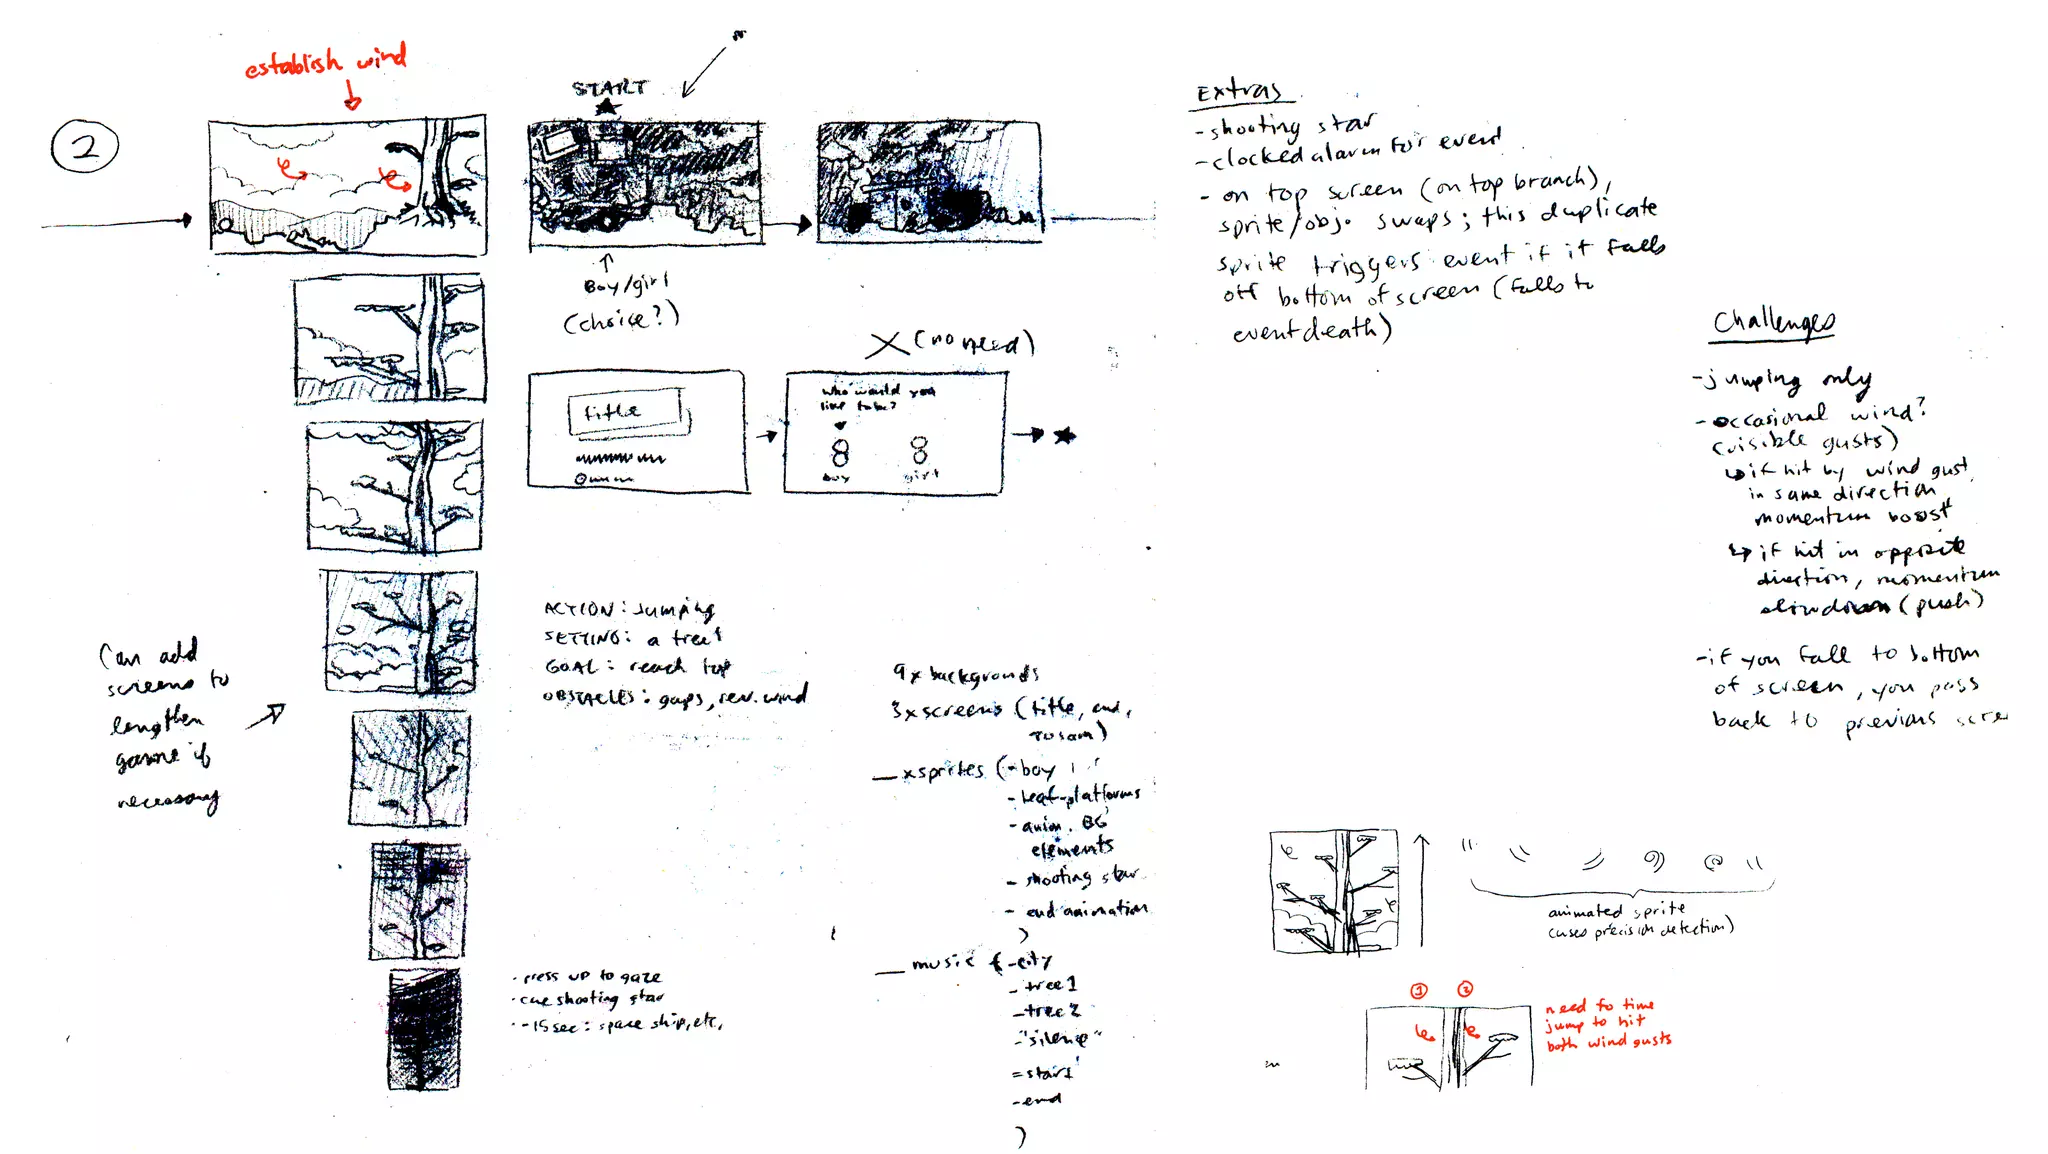 establish wind
2
START
Boy/girl
(choice?)
X (no need)
title
who would you
like to be?
boy
girl
Can add
screens to
lengthen
game if
necessary
ACTION: Jumping
SETTING: a tree
GOAL: reach top
OBSTACLES: gaps, rev. wind
- press up to gaze
- cue shooting star
- ~15sec: space ship, etc.
9x backgrounds
3x screens (title, end,
__ x sprites (- boy
- leaf-platforms
- anim. BG
elements
- shooting star
- end animation
)
__ music (- city
- tree1
- tree2
- "silence"
- start
- end
)
Extras
- shooting star
- clocked alarm for event
- on top screen (on top branch),
sprite/obj. swaps; this duplicate
sprite triggers event if it falls
off bottom of screen (falls to
event death)
Challenges
- jumping only
- occasional wind?
(visible gusts)
↳ if hit by wind gust
in same direction
momentum boost
↳ if hit in opposite
direction, momentum
slowdown (push)
- if you fall to bottom
of screen, you pass
back to previous scre
animated sprite
(uses precision detection)
1 2
need to time
jump to hit
both wind gusts